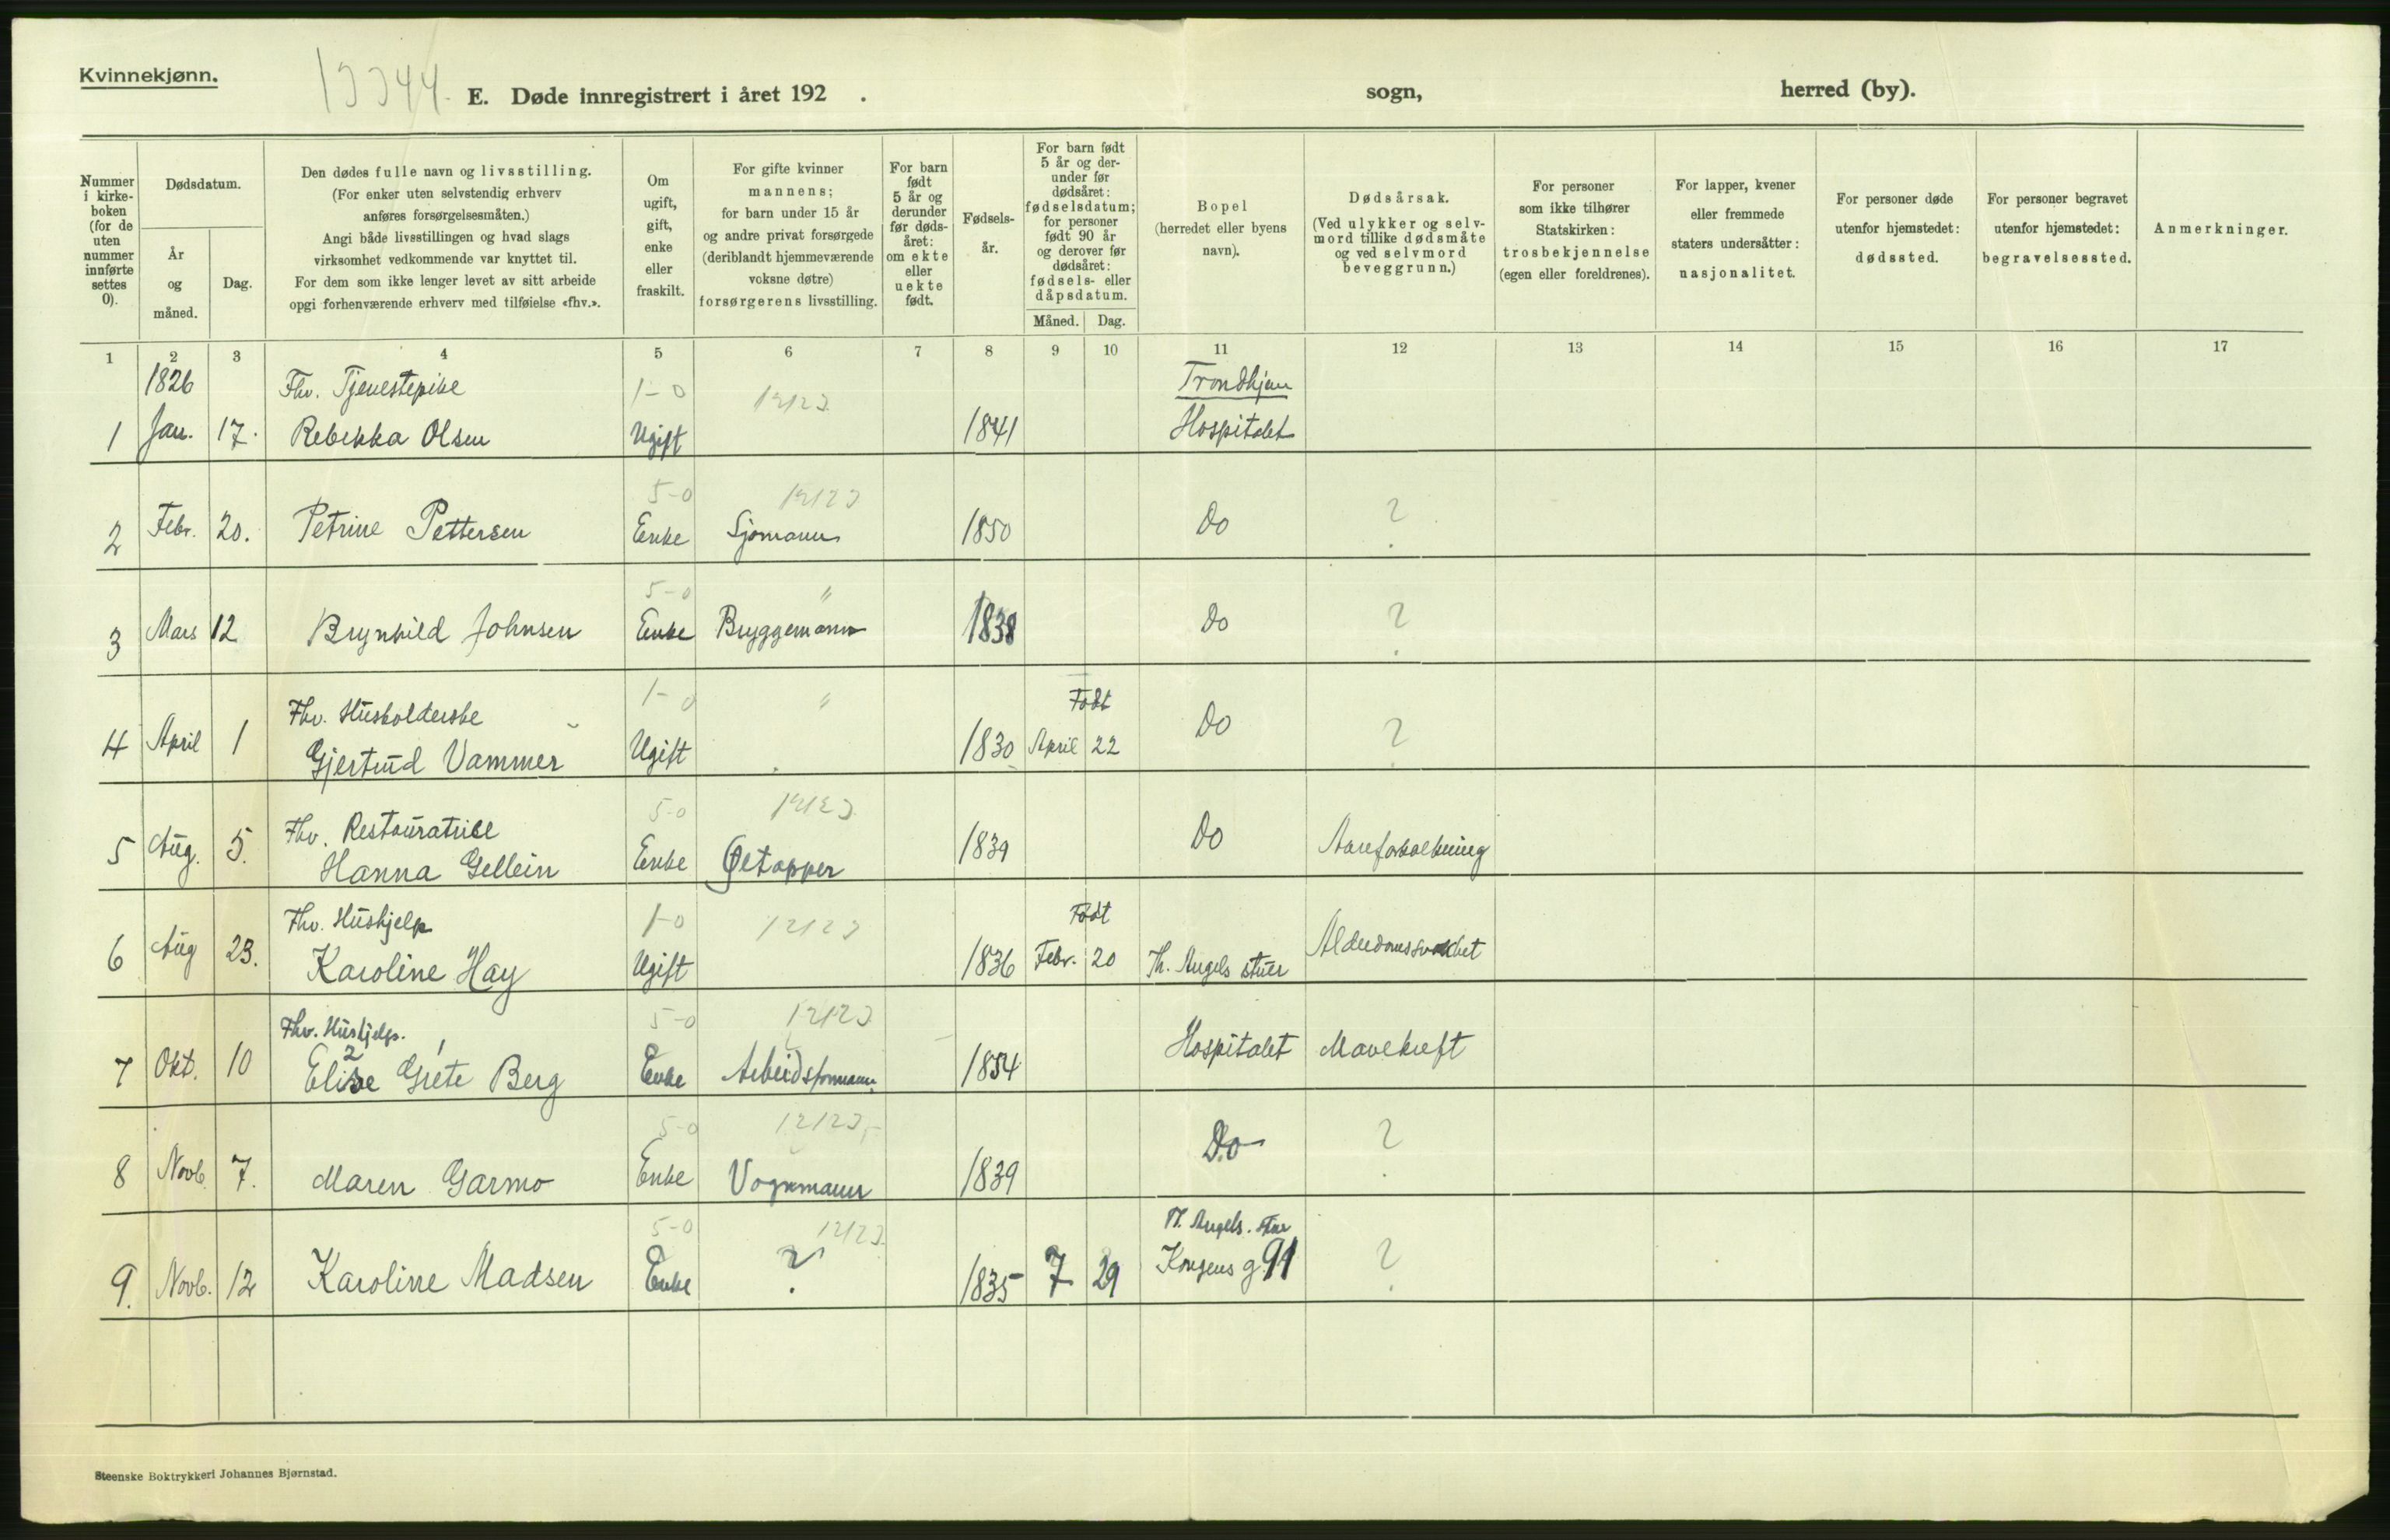 Kvinnekjønn.
13344.
E. Døde innregistrert i året 192 . sogn, herred (by).
Nummer i kirke-boken (for de uten nummer innførte settes 0).
Dødsdatum.
År og måned.
Dag.
Den dødes fulle navn og livsstilling.
(For enker uten selvstendig erhverv
anføres forsørgelsesmåten.)
Angi både livsstillingen og hvad slags
virksomhet vedkommende var knyttet til.
For dem som ikke lenger levet av sitt arbeide
opgi forhenværende erhverv med tilføielse «fhv.».
Om ugift, gift, enke eller fraskilt.
For gifte kvinner
mannens;
for barn under 15 år
og andre privat forsørgede
(deriblandt hjemmeværende
voksne døtre)
forsørgerens livsstilling.
For barn født 5 år og derunder før døds-året: om ekte eller uekte født.
Fødsels-år.
For barn født
5 år og der-
under før
dødsåret:
fødselsdatum;
for personer
født 90 år
og derover før
dødsåret:
fødsels- eller
dåpsdatum.
Måned. Dag.
Bopel
(herredet eller byens
navn).
Dødsårsak.
(Ved ulykker og selv-
mord tillike dødsmåte
og ved selvmord
beveggrunn.)
For personer
som ikke tilhører
Statskirken:
trosbekjennelse
(egen eller foreldrenes).
For lapper, kvener
eller fremmede
staters undersåtter:
nasjonalitet.
For personer døde
utenfor hjemstedet:
dødssted.
For personer begravet
utenfor hjemstedet:
begravelsessted.
Anmerkninger.
1 2 3 4 5 6 7 8 9 10 11 12 13 14 15 16 17
1826 Fhv. Tjenestepike 1-0 12123 Trondhjem
1 Jan. 17. Rebekka Olsen Ugift 1841 Hospitalet
5-0 12123
2 Febr. 20. Petrine Pettersen Enke Sjømann 1850 Do ?
5-0 "
3 Mars 12 Brynhild Johnsen Enke Bryggemann 1838 Do ?
Fhv. Husholderske 1-0 " Født
4 April 1 Gjertrud Vammer Ugift 1830 April 22 Do ?
Fhv. Restauratrice 5-0 12123
5 Aug. 5. Hanna Gellein Enke Øltapper 1839 Do Aareforkalkning
Fhv. Hushjelp 1-0 12123 Født
6 Aug 23. Karoline Hay Ugift 1836 Febr. 20 Th. Angels stuer Alderdomssvakhet
Fhv. Hushjelp. 5-0 12123
2 1
7 Okt. 10 Elise Grete Berg Enke Arbeidsformann 1854 Hospitalet Mavekreft
5-0 12123
8 Novb. 7. Maren Garmo Enke Vognmann 1839 Do ?
5-0 12123 Th. Angels. stue
9. Novb. 12 Karoline Madsen Enke ? 1835 7 29 Kongens g. 91 ?
Steenske Boktrykkeri Johannes Bjørnstad.